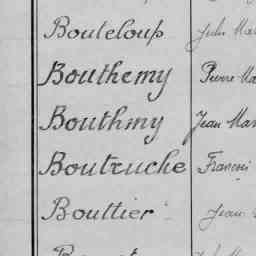 Bouteloup Jules Mar
Bouthemy Pierre Ma
Bouthmy Jean Mar
Boutruche Francois
Bouttier Jean